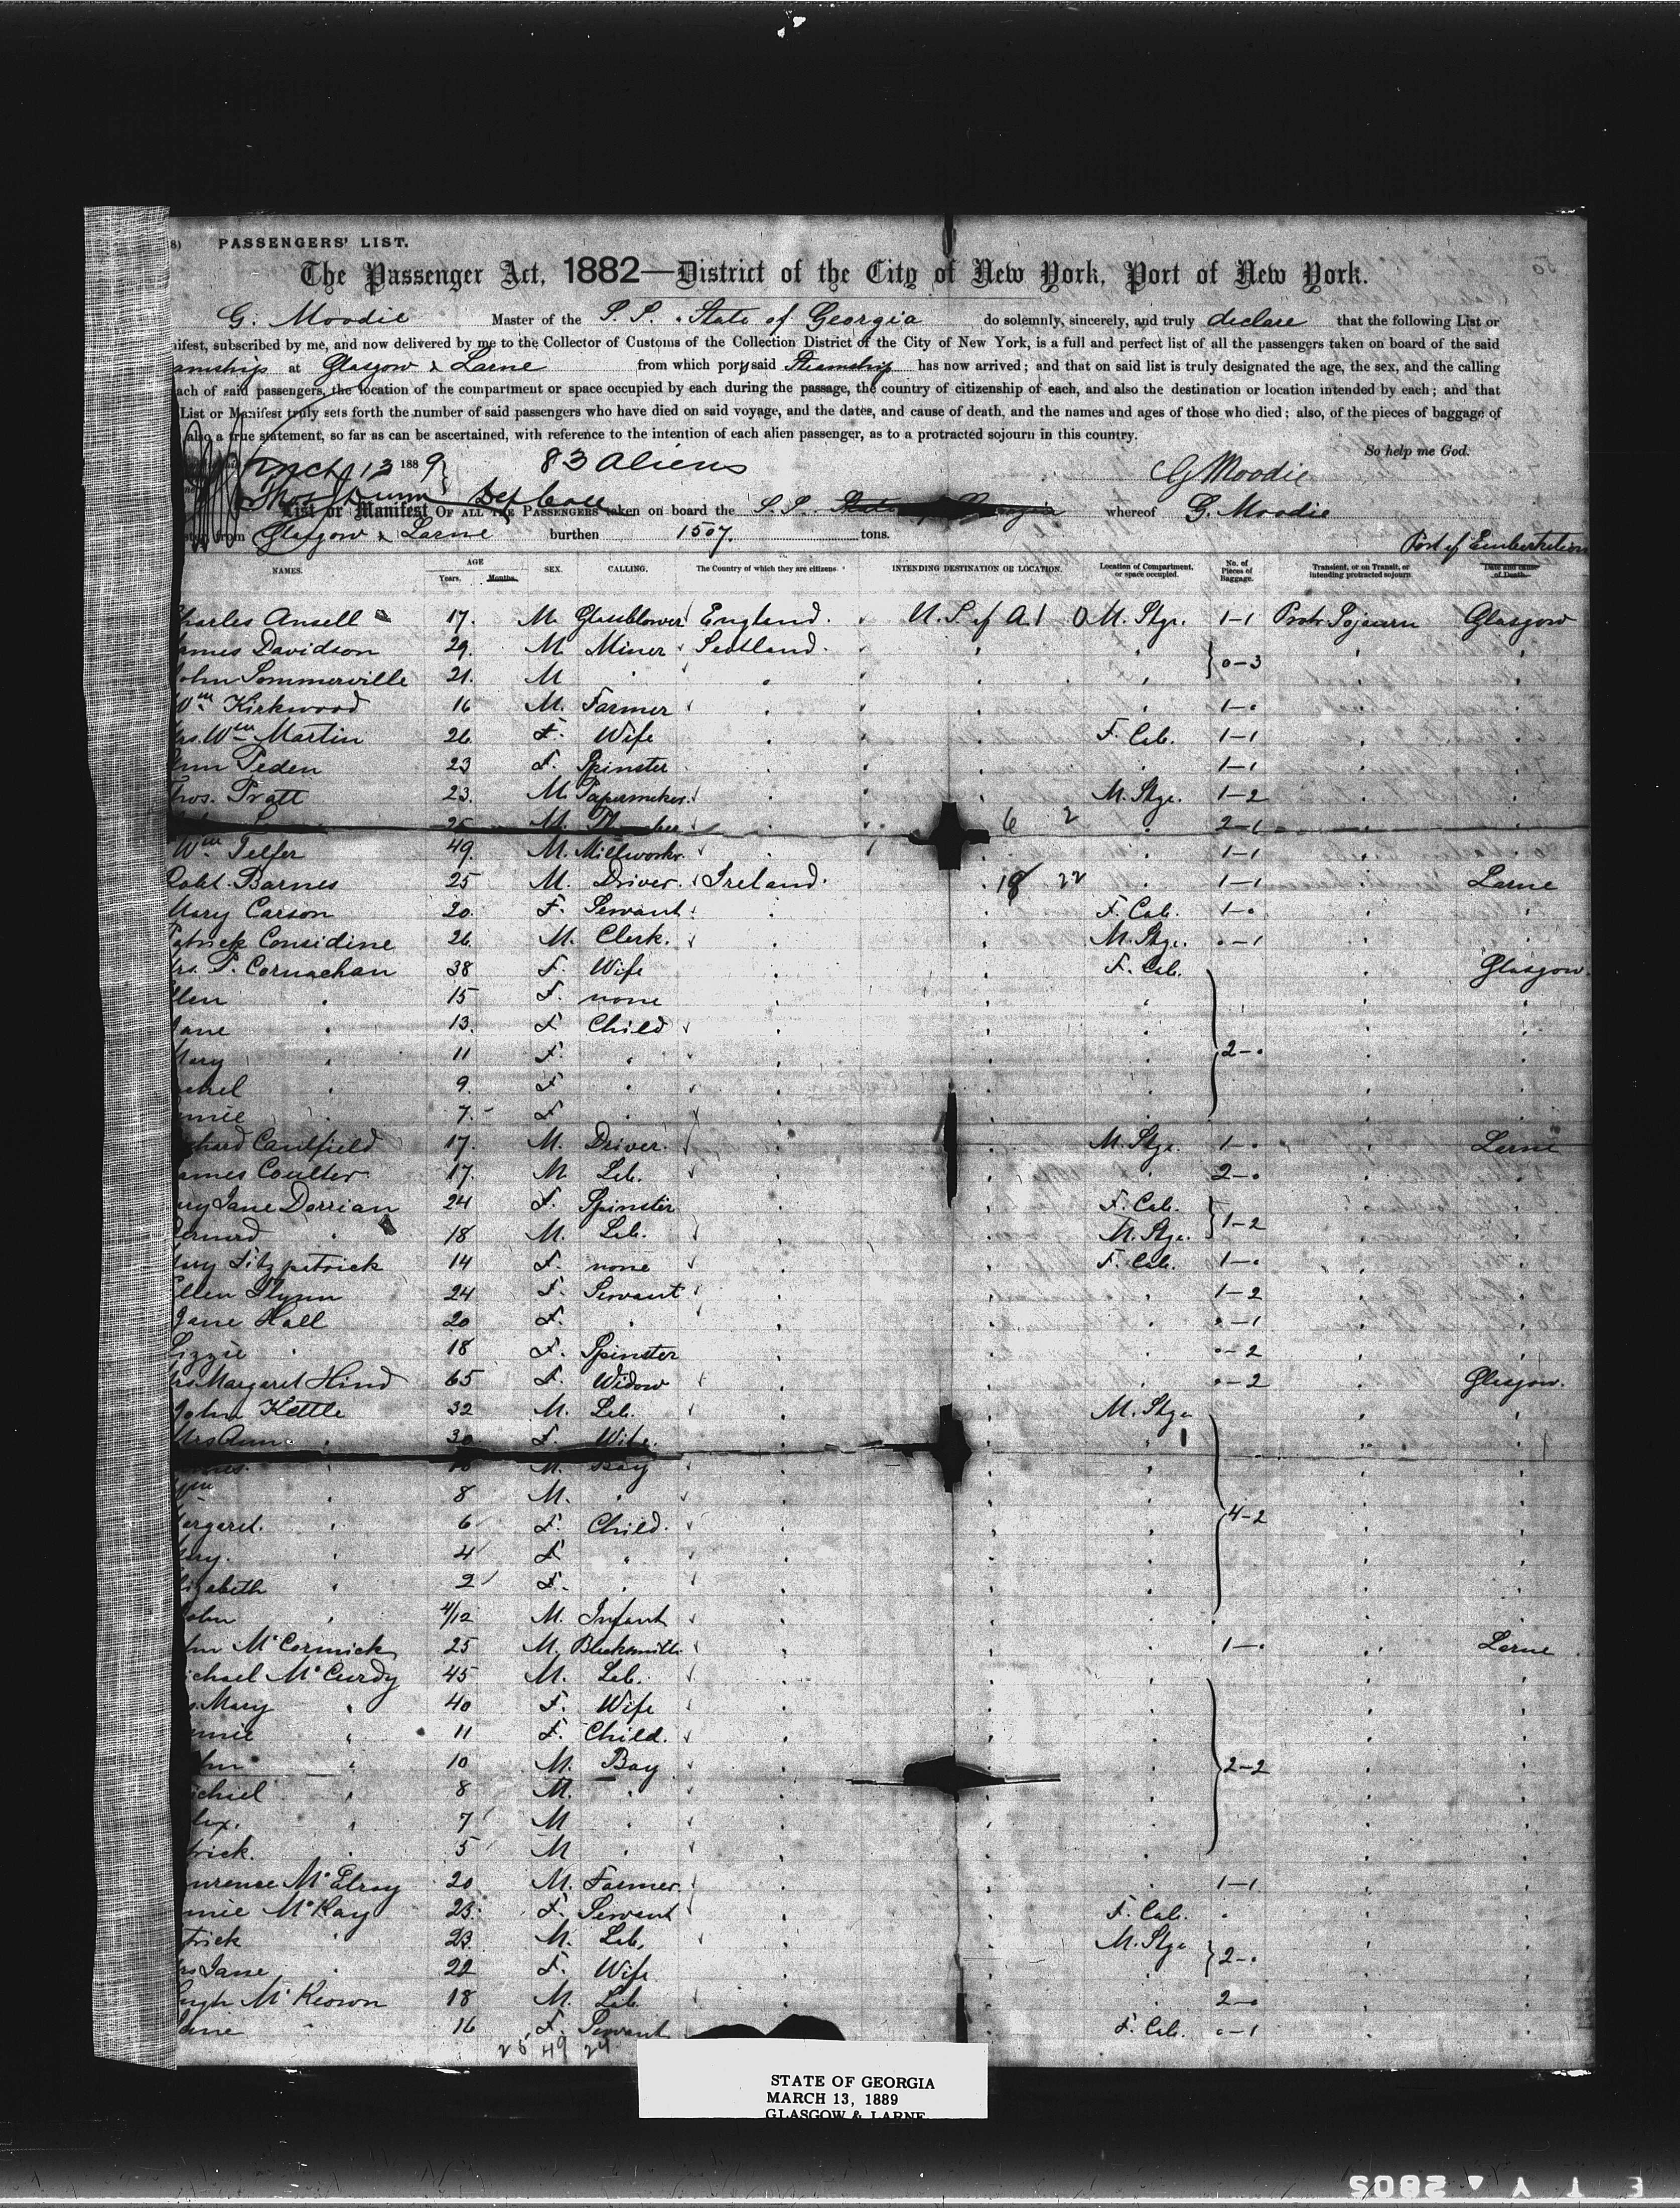 8) PASSENGERS' LIST.
The Passenger Act, 1882—District of the City of New York, Port of New York.
G. Moodie Master of the S.S. State of Georgia do solemnly, sincerely, and truly declare that the following List or
ifest, subscribed by me, and now delivered by me to the Collector of Customs of the Collection District of the City of New York, is a full and perfect list of all the passengers taken on board of the said
amship at Glasgow & Larne from which port said Steamship has now arrived; and that on said list is truly designated the age, the sex, and the calling
ach of said passengers, the location of the compartment or space occupied by each during the passage, the country of citizenship of each, and also the destination or location intended by each; and that
List or Manifest truly sets forth the number of said passengers who have died on said voyage, and the dates, and cause of death, and the names and ages of those who died; also, of the pieces of baggage of
also a true statement, so far as can be ascertained, with reference to the intention of each alien passenger, as to a protracted sojourn in this country.
So help me God.
Mch 13 1889 83 Aliens G Moodie
Thos Dunn
List or Manifest OF ALL THE PASSENGERS taken on board the S.S. State Georgia whereof G. Moodie
from Glasgow & Larne burthen 1507. tons.
Port of Embarkation
NAMES. AGE Years. Months. SEX. CALLING. The Country of which they are citizens. INTENDING DESTINATION OR LOCATION. Location of Compartment, or space occupied. No. of Pieces of Baggage. Transient, or on Transit, or intending protracted sojourn Date and cause of Death.
harles Ansell 17. M Glassblower England. U.S. of A. M. Stge. 1-1 Protr Sojourn Glasgow
ames Davidson 29. M Miner Scotland. " " } 0-3 " "
ohn Sommerville 21. M " " " " " "
Wm Kirkwood 16 M. Farmer " " " 1-0 " "
rs. Wm Martin 26 F. Wife " " F. Cab. 1-1 " "
nn Peden 23 F. Spinster " " " 1-1 " "
hos. Pratt 23. M. Papermaker " " M. Stge. 1-2 " "
25 M. 6 2 " 2-1
Wm Telfer 49. M. Millworkr. " " " 1-1 " "
Robt. Barnes 25 M. Driver. Ireland. " 18 22 " 1-1 " Larne
Mary Carson 20. F. Servant " " F. Cab. 1-0 " "
Patrick Considine 26 M. Clerk. " " M. Stge. 0-1 " "
rs. P. Cornachan 38 F. Wife " " F. Cab. " Glasgow.
llen " 15 F. none " " " " "
ane " 13. F Child " " " " "
ary 11 F. " " " " } 2-0 " "
chel 9. F " " " " " "
nnie 7. F " " " " " "
chard Caulfield 17. M. Driver. " " M. Stge. 1-0 " Larne
ames Coulter 17. M Lab. " " " 2-0 " "
ary Jane Dorrian 24 F. Spinster " " F. Cab. } 1-2 " "
ernard " 18 M. Lab. " " M. Stge. " "
ary Fitzpatrick 14 F. none " " F. Cab. 1-0 " "
Ellen Flynn 24 F. Servant " " " 1-2 " "
Jane Hall 20 F. " " " " 0-1 " "
Lizzie " 18 F. Spinster " " " 0-2 " "
rs Margaret Hind 65 F. Widow " " " 0-2 " Glasgow.
John Kettle 32 M. Lab. " " M. Stge " "
Mrs Ann. " 30 F. Wife. " " " " "
ames. " 10 M. Boy " " " " "
Wm " 8 M. " " " " " "
argaret. " 6 F. Child. " " " } 4-2 " "
ary. " 4 F " " " " " "
lizabeth " 2 F. " " " " " "
ohn " 4/12 M. Infant " " " " "
hn McCormick 25 M. Blacksmith " " " 1-0 " Larne
ichael McCurdy 45 M. Lab. " " " " "
s. Mary " 40 F. Wife " " " " "
nnie " 11 F. Child. " " " " "
ohn " 10 M. Boy " " " } 2-2 " "
ichael " 8 M. " " " " " "
lex. " 7 M " " " " " "
trick. " 5 M " " " " " "
awrence McElroy 20 M. Farmer. " " " 1-1 " "
nnie McKay 23. F. Servant " " F. Cab. " " "
trick " 23 M. Lab. " " M. Stge } 2-0 " "
rs Jane " 22 F. Wife " " " " "
ugh McKeown 18 M. Lab. " " " 2-0 " "
Jane " 16 F. Servant F. Cab. 0-1 " "
25 49 24
STATE OF GEORGIA
MARCH 13, 1889
GLASGOW & LARNE